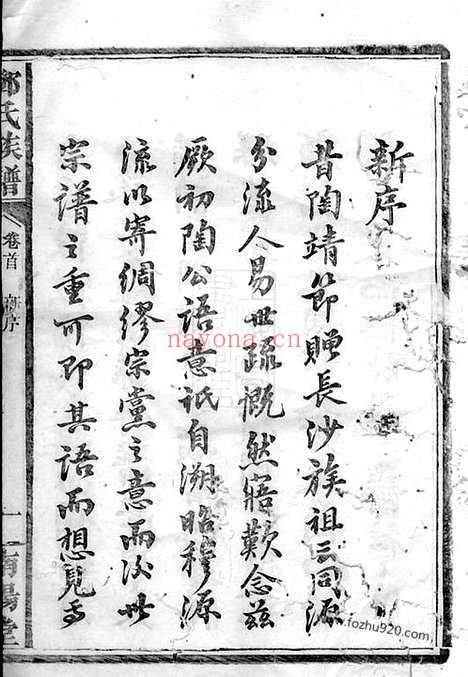 新序
昔陶靖節贈長沙族祖云同源
分流人易世疏慨然寤歎念茲
厥初陶公語意祇自溯昭穆源
流以寄綢繆宗黨之意而後世
宗譜之重可即其語而想見焉
氏族譜
卷首
新序
一
南陽堂
nayona.cn
www.fozhu920.com